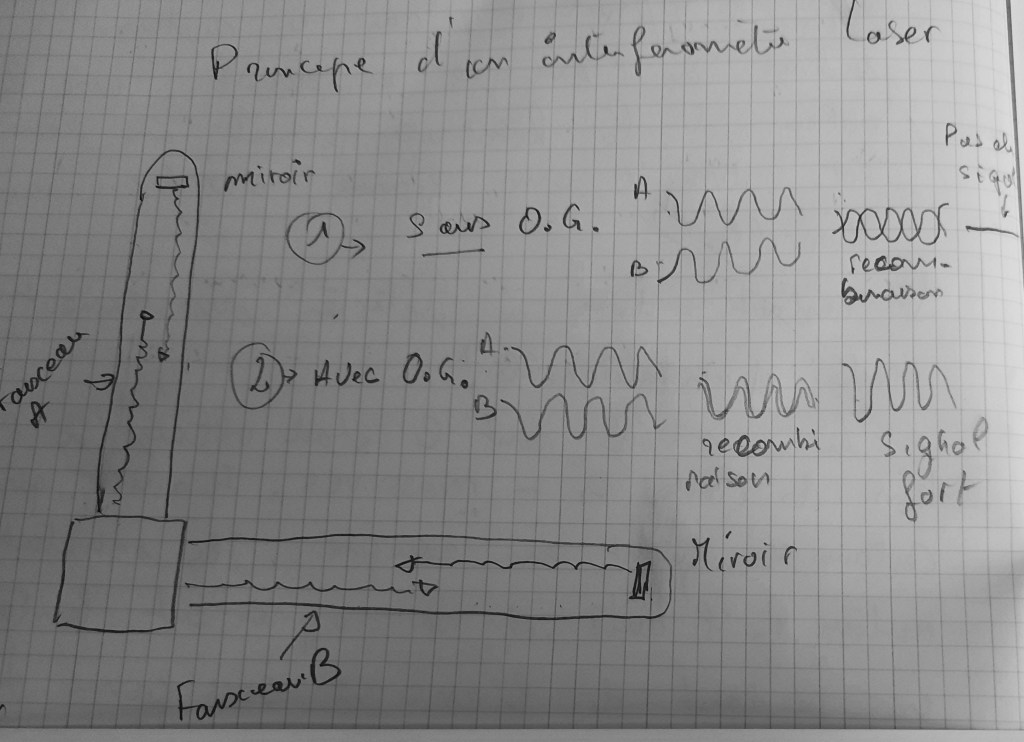 Principe d'un interféromètre laser
miroir
1 → Sans O.G.
A
B
recom-
binaison
Pas de
signal
2 → Avec O.G.
A
B
recombi
naison
Signal
fort
Faisceau
A
Miroir
Faisceau B